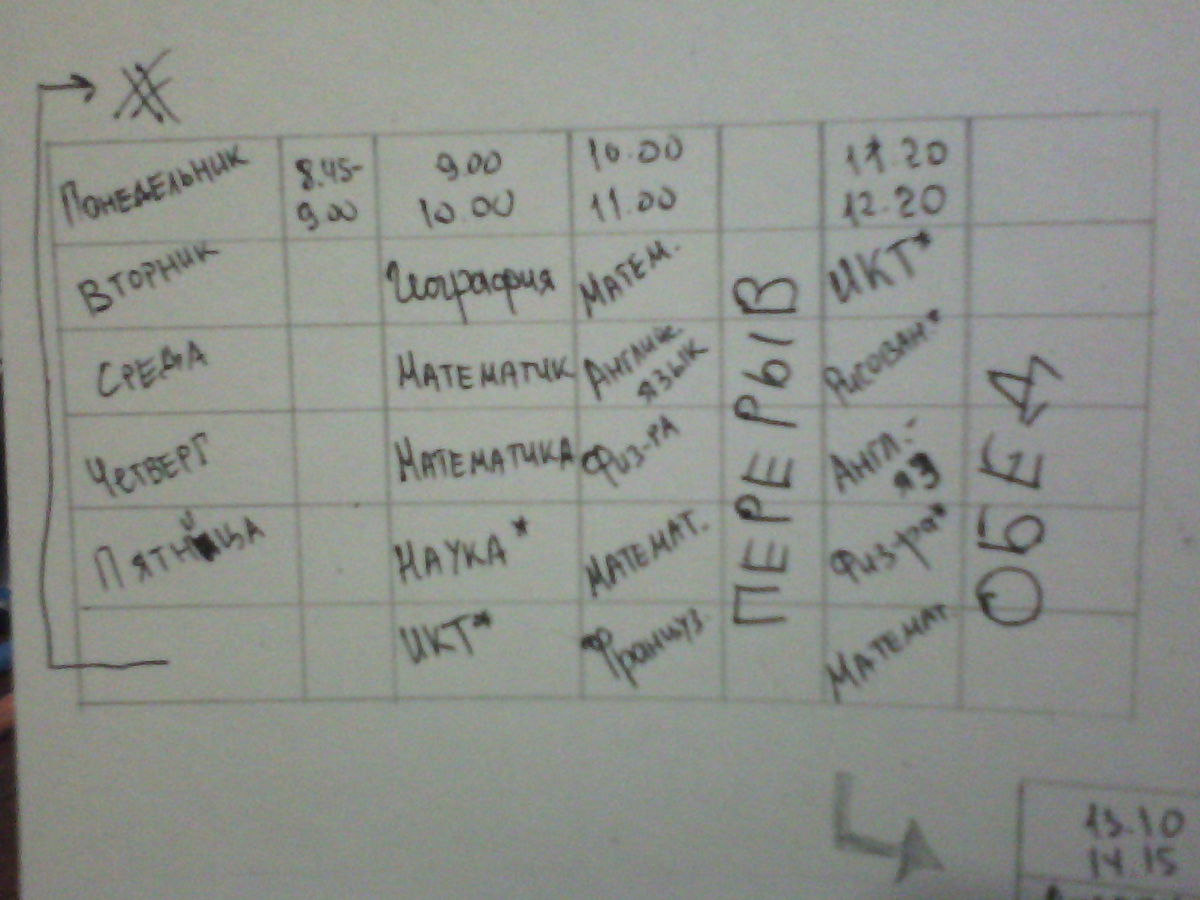 Понедельник 8.45- 9.00 10.00 11.20
9.00 10.00 11.00 12.20
Вторник География Матем. ИКТ*
Среда Математик Английс. Рисован.*
язык
Четверг Математика Физ-ра Англ.-
яз
Пятница Наука* Математ. Физ-ра*
ИКТ* Француз. Математ.
ПЕРЕРЫВ
ОБЕД
13.10
14.15